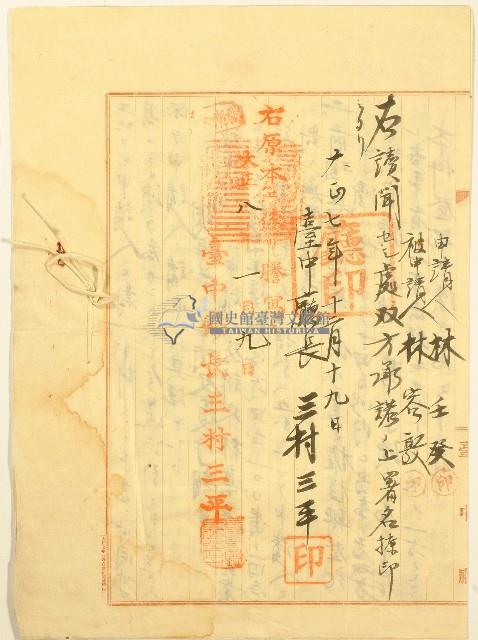 申請人 林壬癸 印
被申請人 林容敬
右讀聞セシ處双方承諾ノ上署名捺印
セリ
大正七年十二月十九日
臺中廳長 三村三平 印
廳印
右原本ニ依リ謄寫ス
大正八一月九日
臺中廳長三村三平
國史館臺灣文獻館
TAIWAN HISTORICA
臺中廳